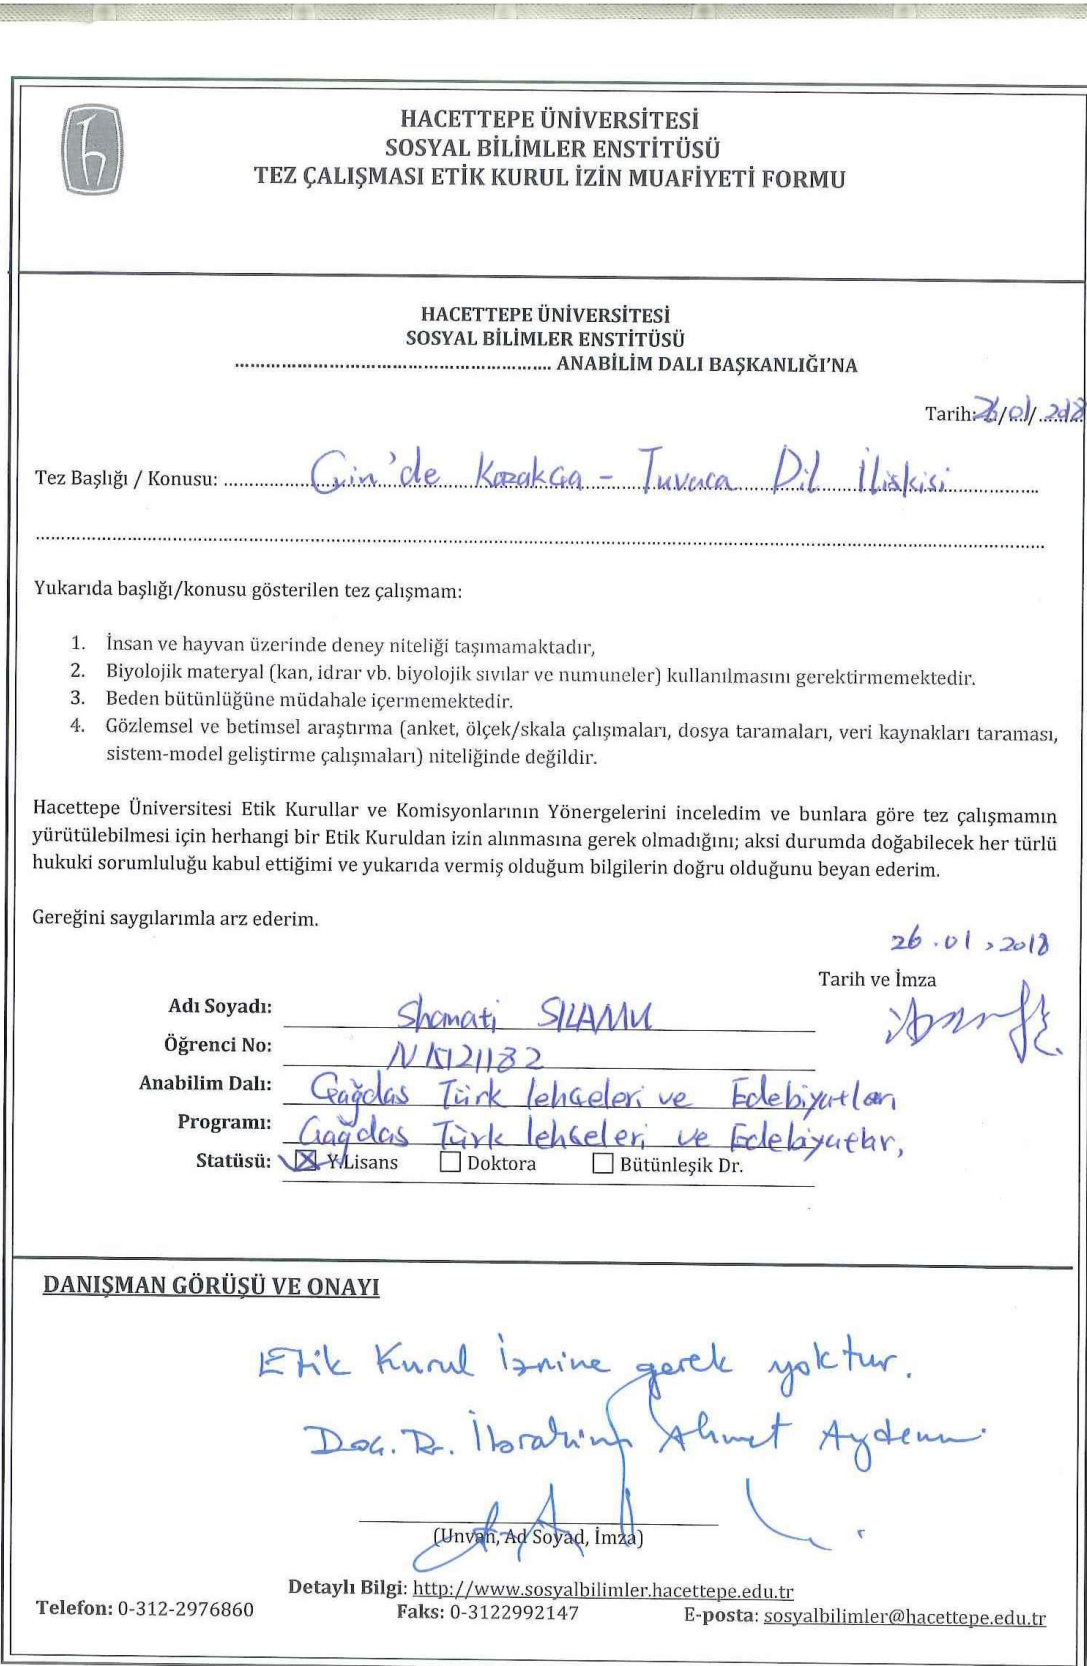 HACETTEPE ÜNİVERSİTESİ
SOSYAL BİLİMLER ENSTİTÜSÜ
TEZ ÇALIŞMASI ETİK KURUL İZİN MUAFİYETİ FORMU
HACETTEPE ÜNİVERSİTESİ
SOSYAL BİLİMLER ENSTİTÜSÜ
........................................................ ANABİLİM DALI BAŞKANLIĞI'NA
Tarih: 26/01/2018
Tez Başlığı / Konusu: Çin'de Kazakça - Tuvaca Dil İlişkisi
Yukarıda başlığı/konusu gösterilen tez çalışmam:
1. İnsan ve hayvan üzerinde deney niteliği taşımamaktadır,
2. Biyolojik materyal (kan, idrar vb. biyolojik sıvılar ve numuneler) kullanılmasını gerektirmemektedir.
3. Beden bütünlüğüne müdahale içermemektedir.
4. Gözlemsel ve betimsel araştırma (anket, ölçek/skala çalışmaları, dosya taramaları, veri kaynakları taraması,
sistem-model geliştirme çalışmaları) niteliğinde değildir.
Hacettepe Üniversitesi Etik Kurullar ve Komisyonlarının Yönergelerini inceledim ve bunlara göre tez çalışmamın
yürütülebilmesi için herhangi bir Etik Kuruldan izin alınmasına gerek olmadığını; aksi durumda doğabilecek her türlü
hukuki sorumluluğu kabul ettiğimi ve yukarıda vermiş olduğum bilgilerin doğru olduğunu beyan ederim.
Gereğini saygılarımla arz ederim.
26.01.2018
Tarih ve İmza
Adı Soyadı: Shamati SILAMU
Öğrenci No: N15121182
Anabilim Dalı: Çağdaş Türk lehçeleri ve Edebiyatları
Programı: Çağdaş Türk lehçeleri ve Edebiyatları
Statüsü: ☒ Y.Lisans ☐ Doktora ☐ Bütünleşik Dr.
DANIŞMAN GÖRÜŞÜ VE ONAYI
Etik Kurul İznine gerek yoktur.
Doç. Dr. İbrahim Ahmet Aydemir
(Unvan, Ad Soyad, İmza)
Detaylı Bilgi: http://www.sosyalbilimler.hacettepe.edu.tr
Telefon: 0-312-2976860 Faks: 0-3122992147 E-posta: sosyalbilimler@hacettepe.edu.tr